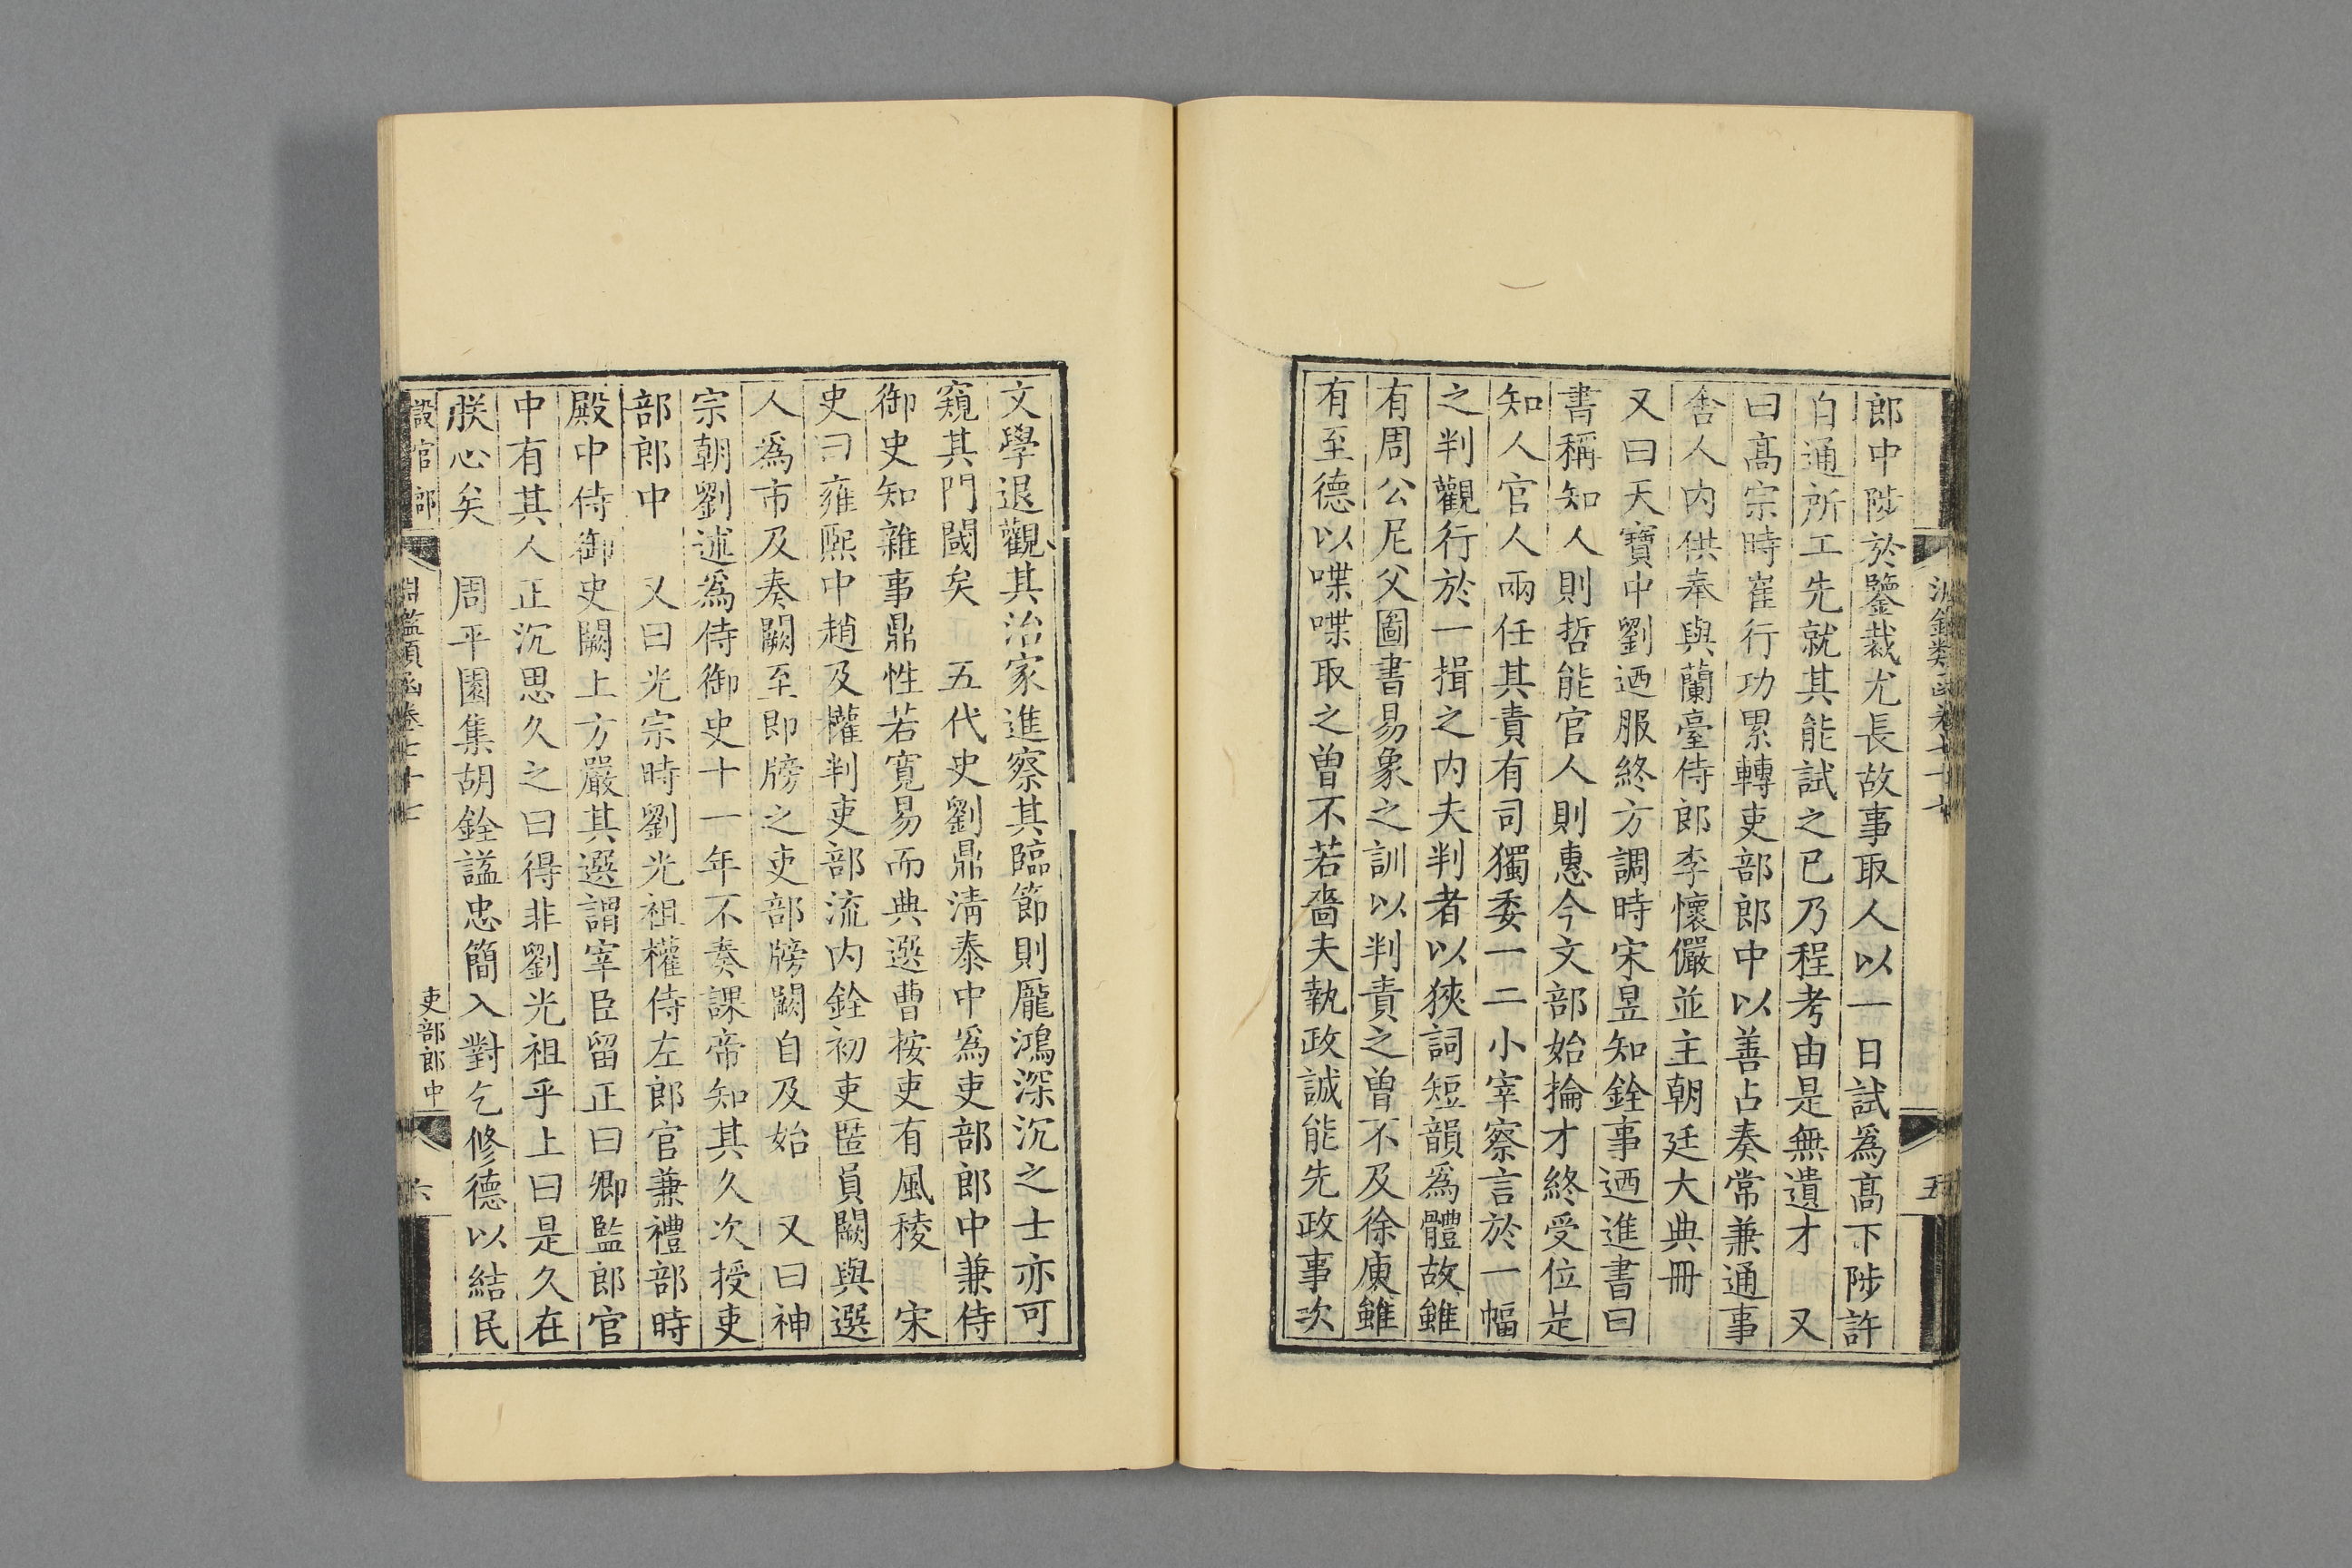 郎中陟於鑒裁尤長故事取人以一日試爲高下陟許
自通所工先就其能試之已乃程考由是無遺才 又
曰高宗時崔行功累轉吏部郎中以善占奏常兼通事
舍人内供奉與蘭臺侍郎李懷儼並主朝廷大典冊
又曰天寶中劉迺服終方調時宋昱知銓事迺進書曰
書稱知人則哲能官人則惠今文部始掄才終受位是
知人官人兩任其責有司獨委一二小宰察言於一幅
之判觀行於一揖之内夫判者以狹詞短韻爲體故雖
有周公尼父圖書易象之訓以判責之曽不及徐庾雖
有至德以喋喋取之曽不若嗇夫執政誠能先政事次
五
文學退觀其治家進察其臨節則厖鴻深沉之士亦可
窺其門閾矣 五代史劉鼎清泰中爲吏部郎中兼侍
御史知雜事鼎性若寛易而典選曹按吏有風稜 宋
史曰雍熙中趙及權判吏部流内銓初吏匿員闕與選
人爲市及奏闕至即牓之吏部牓闕自及始 又曰神
宗朝劉述爲侍御史十一年不奏課帝知其久次授吏
部郎中 又曰光宗時劉光祖權侍左郎官兼禮部時
殿中侍御史闕上方嚴其選謂宰臣留正曰卿監郎官
中有其人正沉思久之曰得非劉光祖乎上曰是久在
朕心矣 周平園集胡銓謚忠簡入對乞修德以結民
設官部
淵鑑類函卷七十七
吏部郎中
六